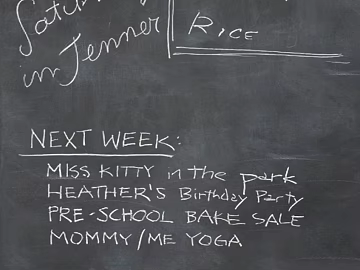 Saturday
in Jenner
RICE
NEXT WEEK:
MISS KITTY in the park
HEATHER'S Birthday Party
PRE-SCHOOL BAKE SALE
MOMMY/ME YOGA